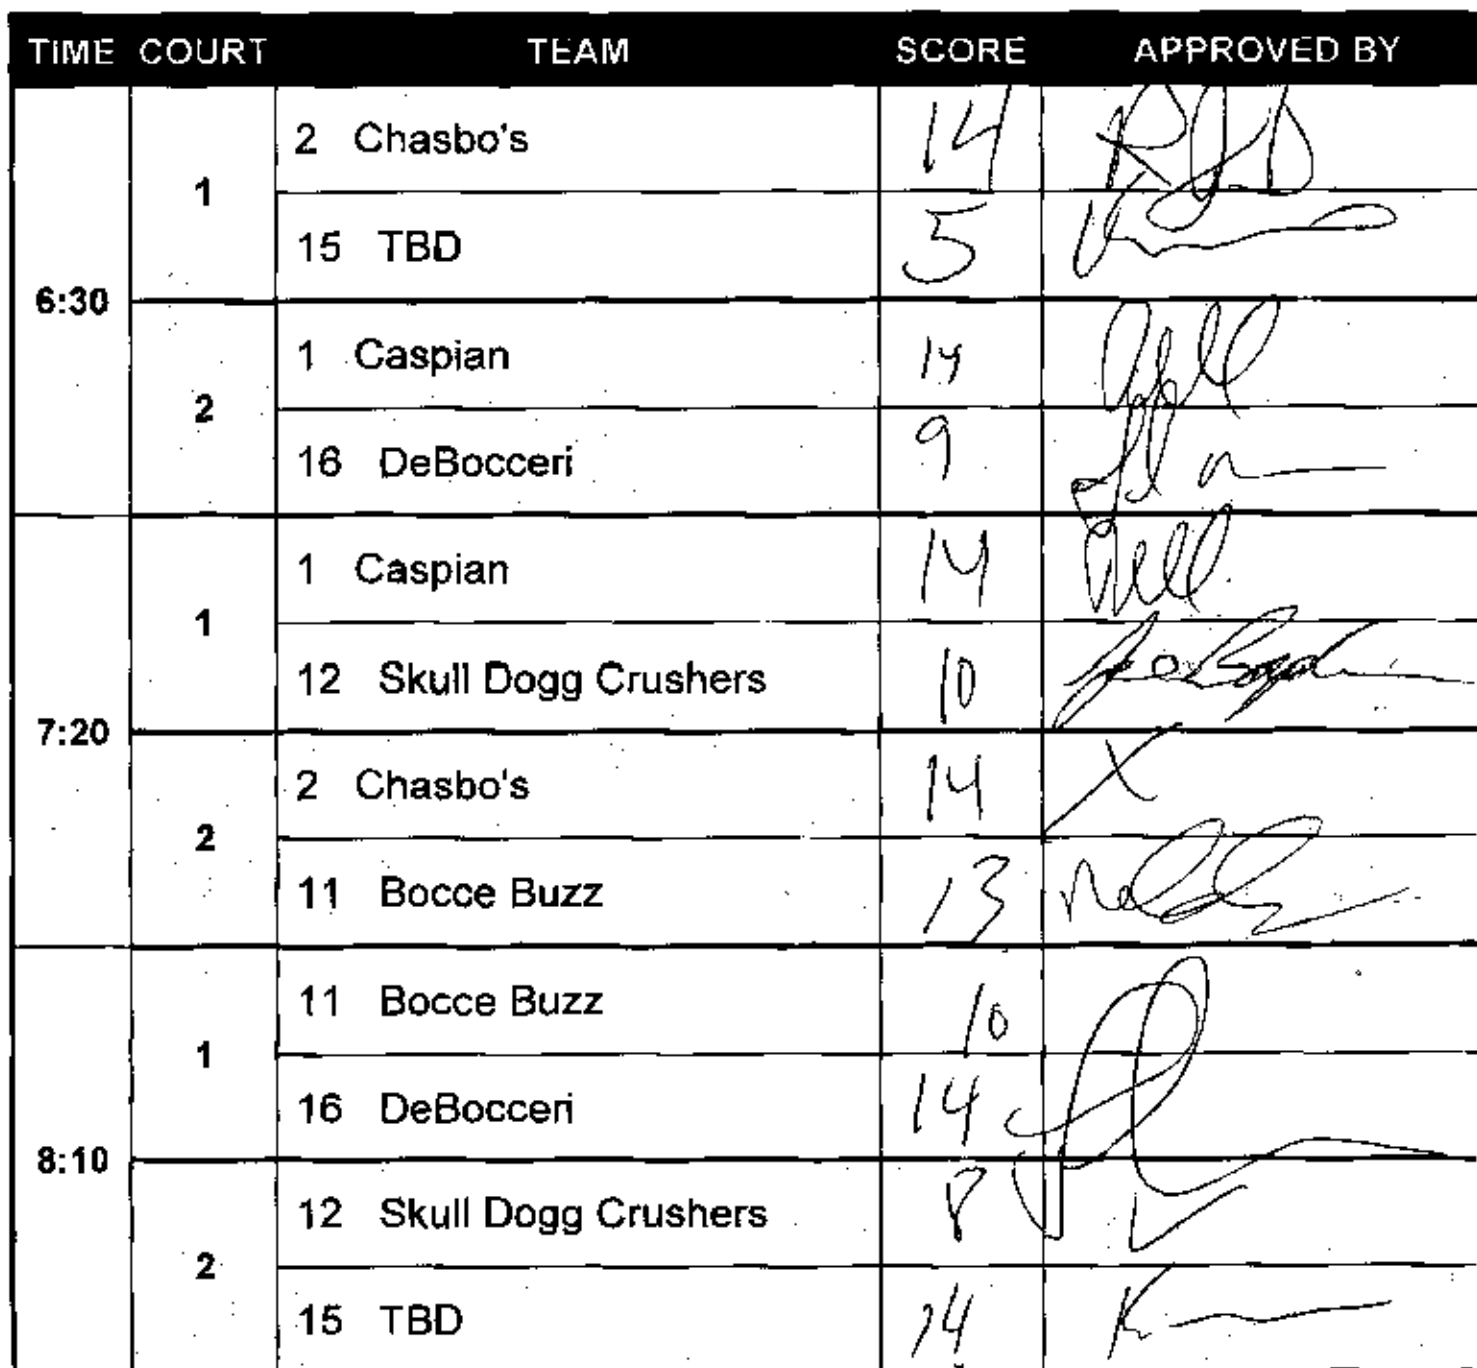 TIME COURT TEAM SCORE APPROVED BY
6:30
1
2 Chasbo's 14
15 TBD 5
2
1 Caspian 14
16 DeBocceri 9
7:20
1
1 Caspian 14
12 Skull Dogg Crushers 10
2
2 Chasbo's 14 X
11 Bocce Buzz 13
8:10
1
11 Bocce Buzz 10
16 DeBocceri 14
2
12 Skull Dogg Crushers 8
15 TBD 14